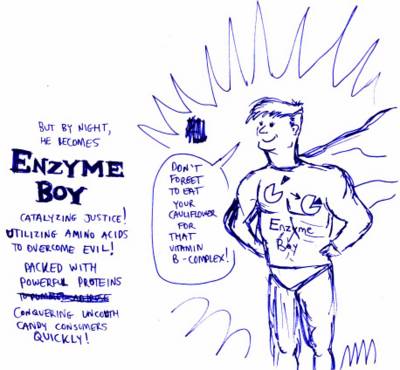 BUT BY NIGHT,
HE BECOMES
ENZYME
BOY
CATALYZING JUSTICE!
UTILIZING AMINO ACIDS
TO OVERCOME EVIL!
PACKED WITH
POWERFUL PROTEINS
CONQUERING UNCOUTH
CANDY CONSUMERS
QUICKLY!
DON'T
FORGET
TO EAT
YOUR
CAULIFLOWER
FOR
THAT
VITAMIN
B-COMPLEX!
Enzyme
Boy